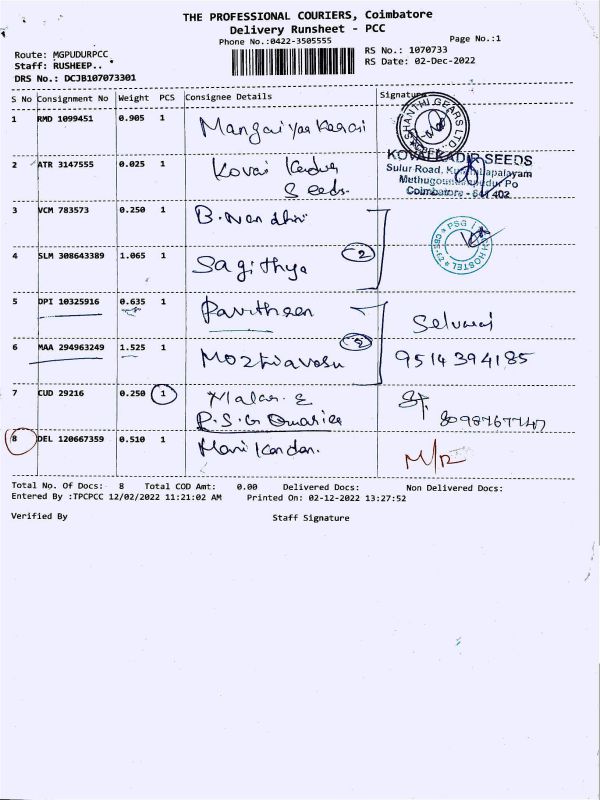 THE PROFESSIONAL COURIERS, Coimbatore
Delivery Runsheet - PCC
Phone No.:0422-3505555
Page No.:1
Route: MGPUDURPCC
RS No.: 1070733
Staff: RUSHEEP..
RS Date: 02-Dec-2022
DRS No.: DCJB107073301
S No Consignment No Weight PCS Consignee Details Signature
1 RMD 1099451 0.905 1 Mangaiyarkarasi
SHANTHI GEARS LTD.
2 ATR 3147555 0.025 1 Kovai Kadir
Seeds.
KOVAI KADIR SEEDS
Sulur Road,
Po
Coimbatore - 641 402
3 VCM 783573 0.250 1 B. Nandhini
PSG HOSTEL
4 SLM 308643389 1.065 1 Sagithya 2
5 DPI 10325916 0.635 1 Pavithran
Selvaraj
6 MAA 294963249 1.525 1 2 9514394185
7 CUD 29216 0.250 1 Malar. E
P.S.G Quaries
8098767747
8 DEL 120667359 0.510 1 Mani Kandan.
M/R
Total No. Of Docs: 8 Total COD Amt: 0.00 Delivered Docs: Non Delivered Docs:
Entered By :TPCPCC 12/02/2022 11:21:02 AM Printed On: 02-12-2022 13:27:52
Verified By Staff Signature